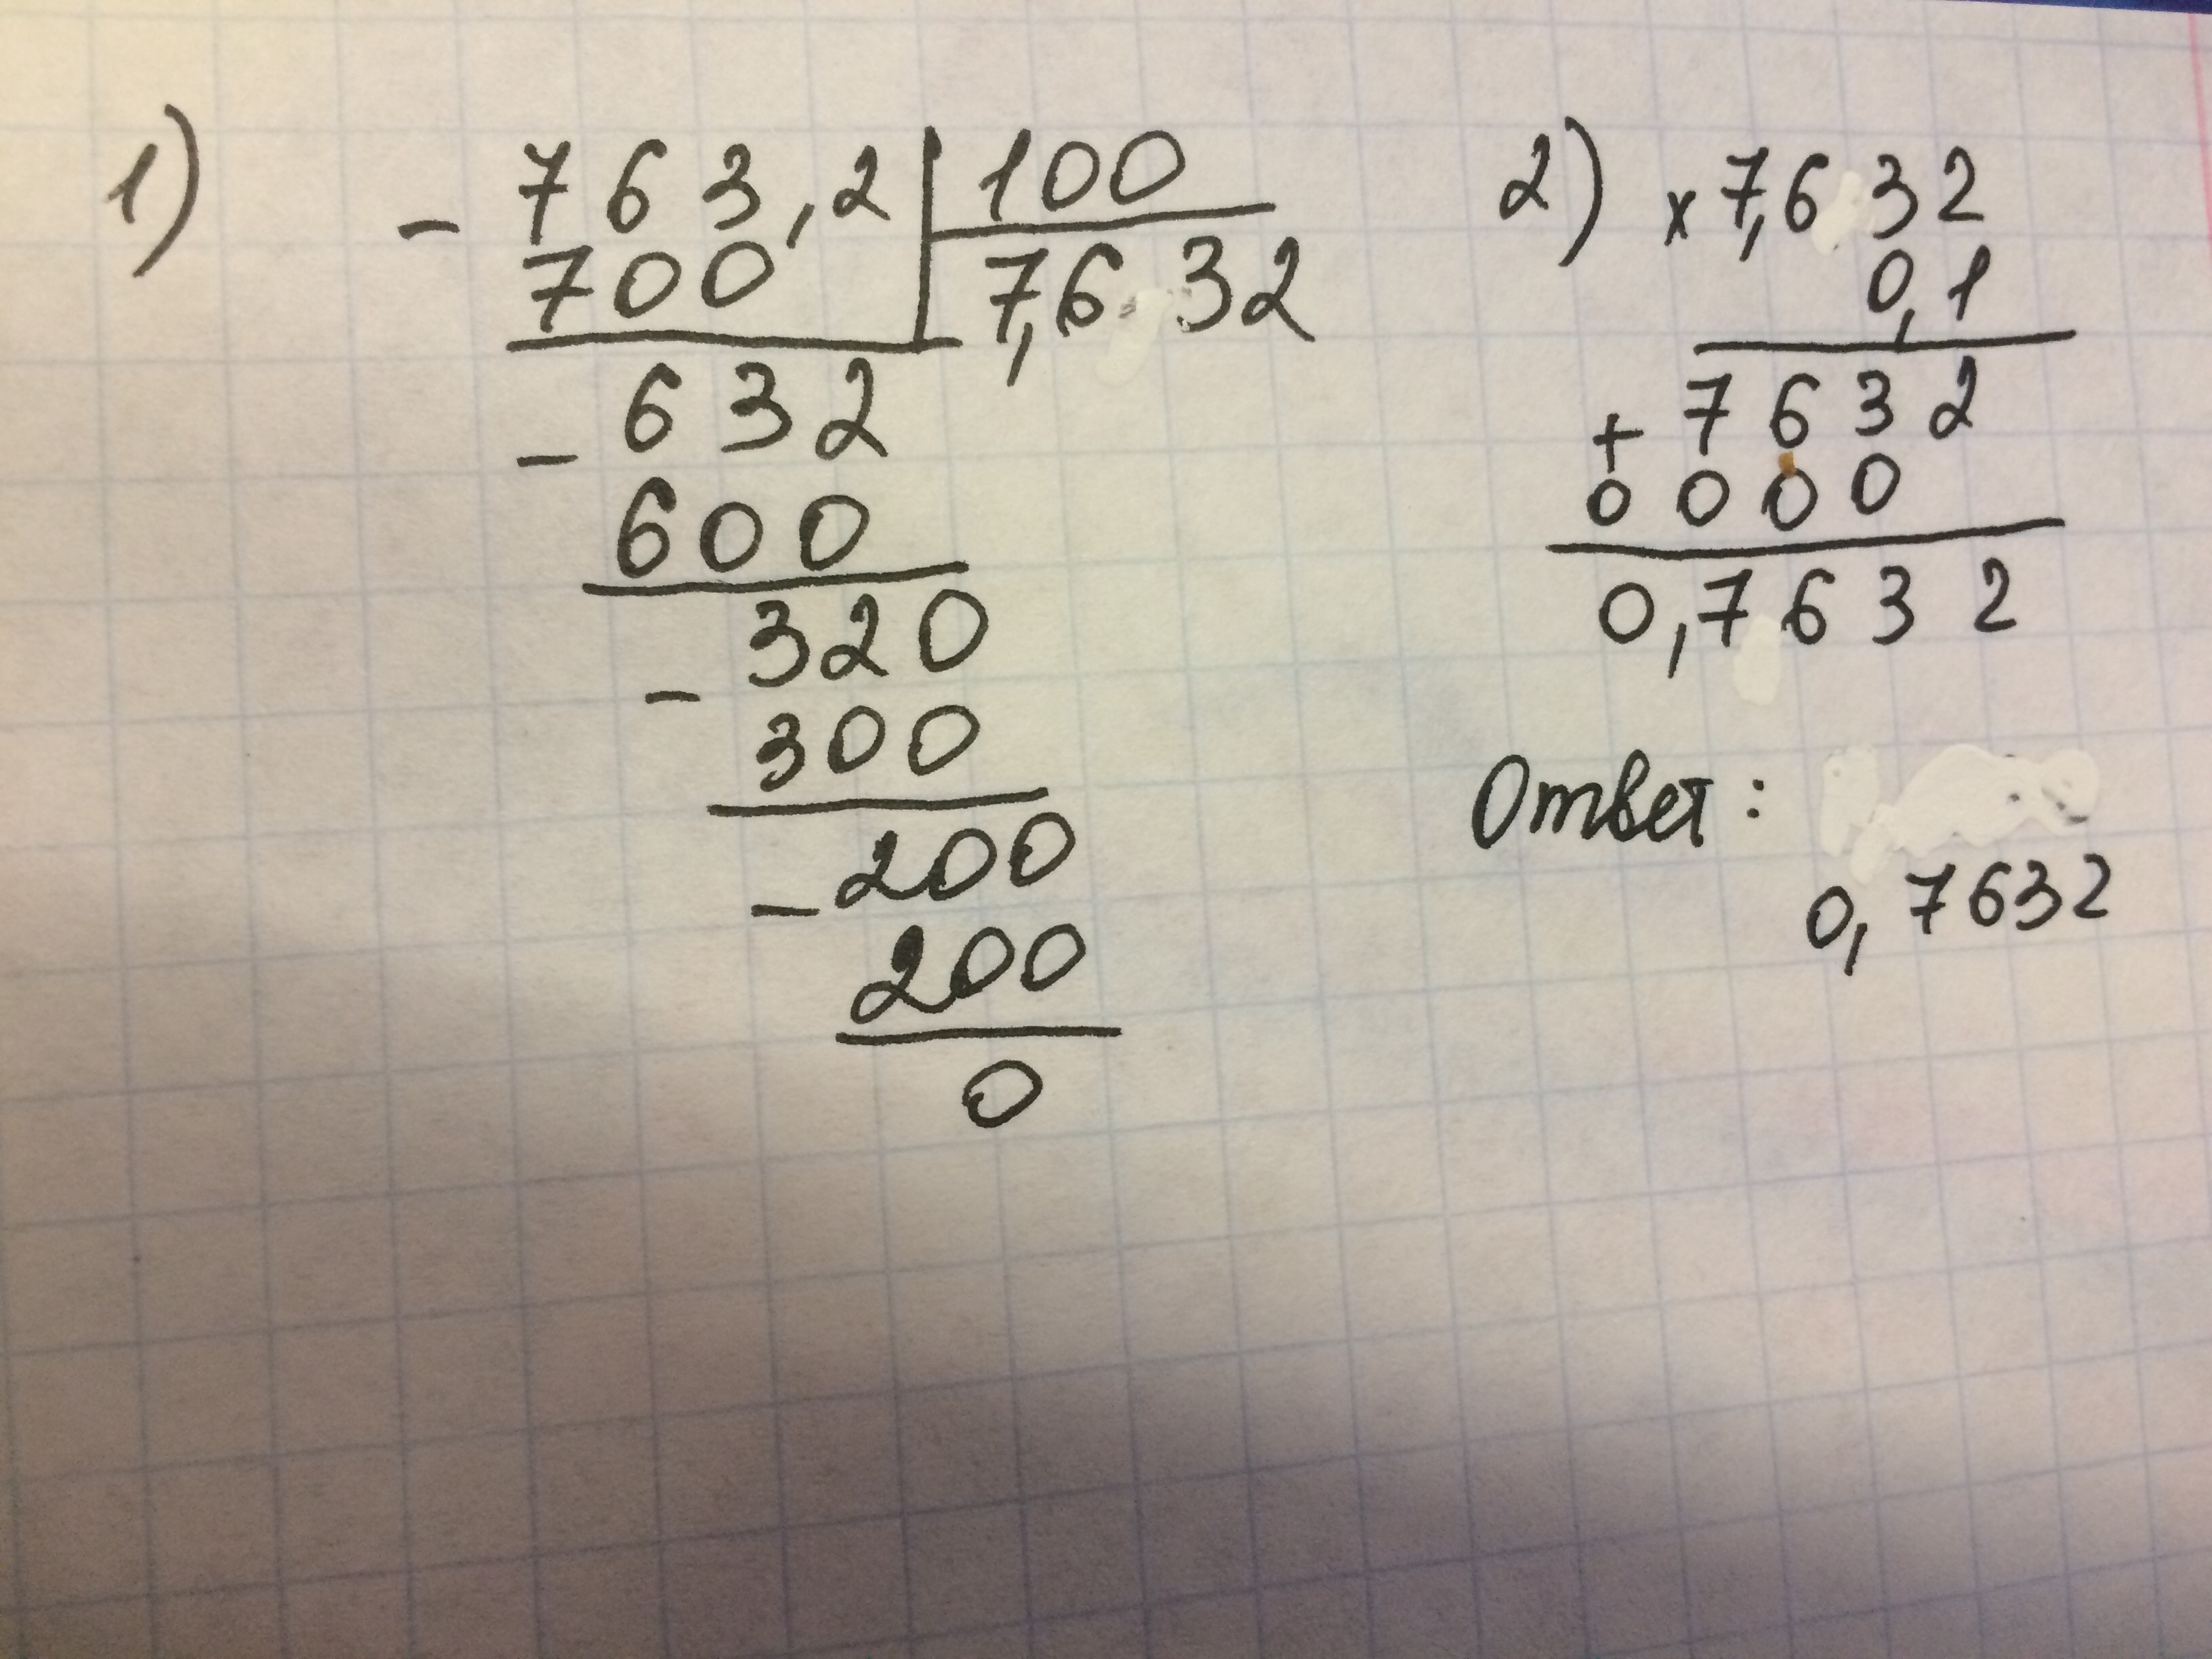 1)
- 763,2 | 100
700 | 7,632
- 632
600
- 320
300
- 200
200
0
2) × 7,632
0,1
+ 7632
0000
0,7632
Ответ:
0,7632